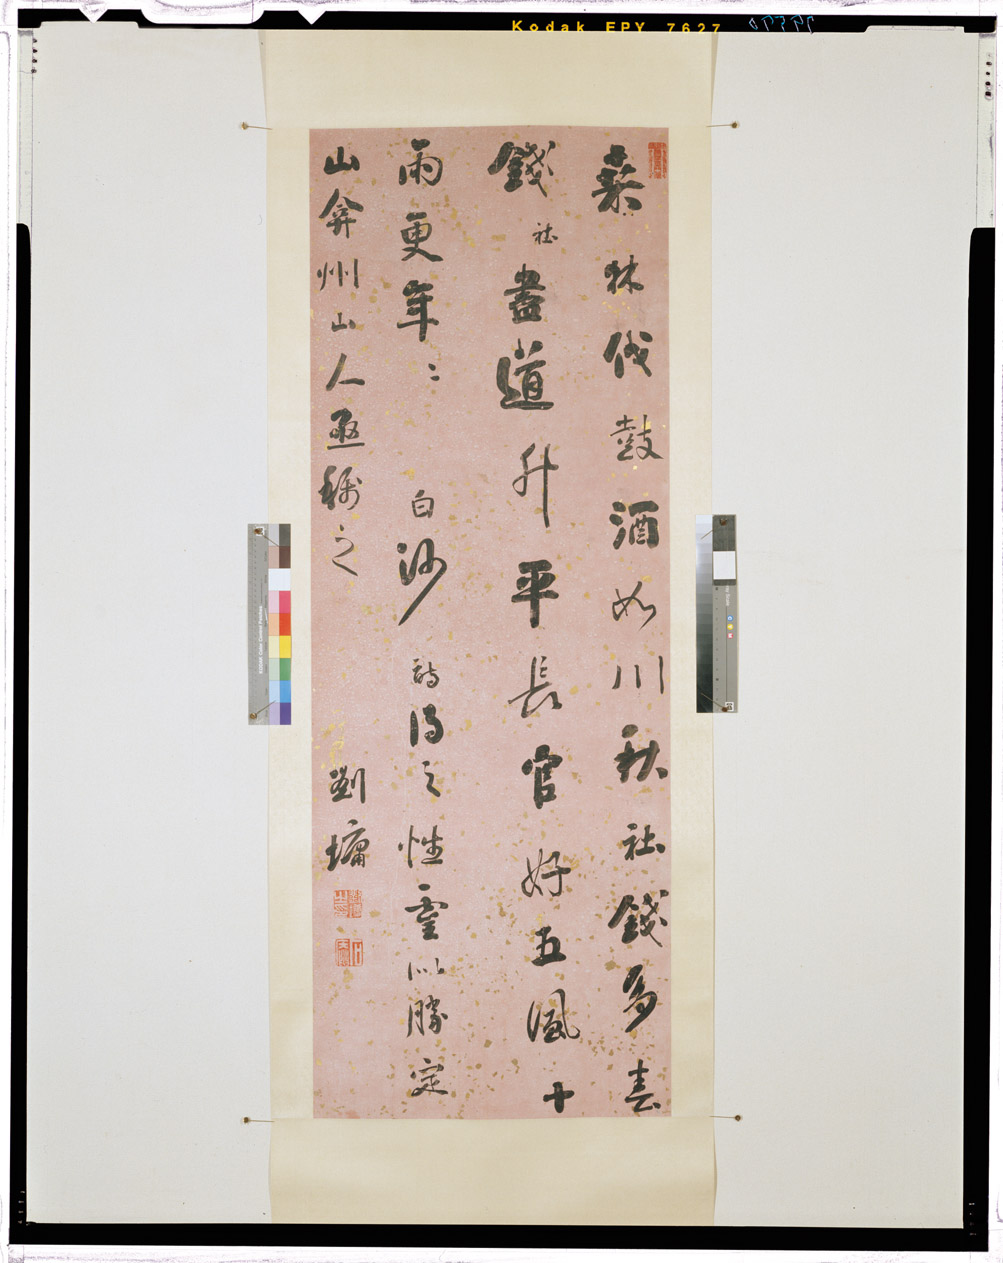 桑林伐鼓酒如川秋社錢為春
錢社盡道升平長官好五風十
雨更年〻白沙詩得之性靈似勝定
山弇州山人亟稱之劉墉
Kodak EPY 7627